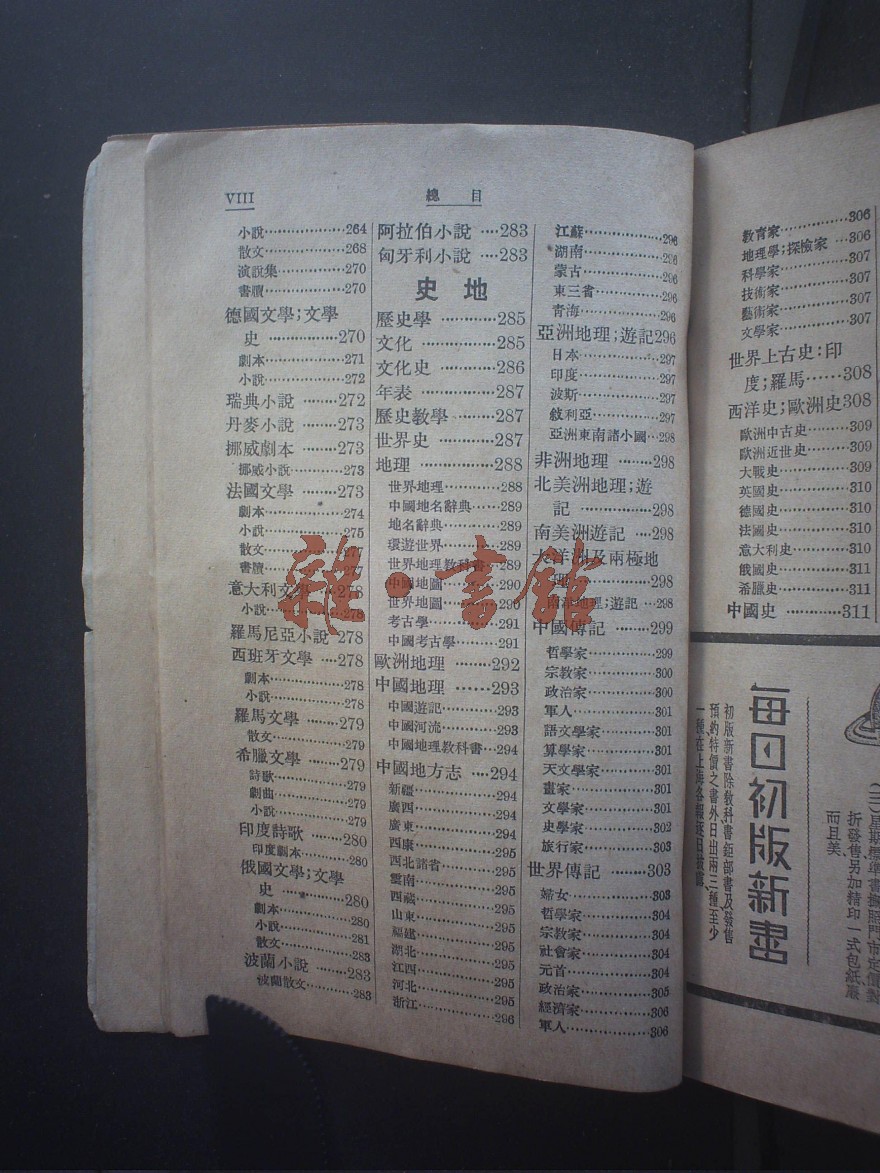 VIII
總 目
小說 264
散文 268
演說集 270
書牘 270
德國文學；文學
史 270
劇本 271
小說 272
瑞典小說 272
丹麥小說 273
挪威劇本 273
挪威小說 273
法國文學 273
劇本 274
小說 275
散文 277
書牘 277
意大利文學 278
小說 278
羅馬尼亞小說 278
西班牙文學 278
劇本 278
小說 278
羅馬文學 279
散文 279
希臘文學 279
詩歌 279
劇曲 279
小說 279
印度詩歌 280
印度劇本 280
俄國文學；文學
史 280
劇本 280
小說 281
散文 283
波蘭小說 283
波蘭散文 283
阿拉伯小說 283
匈牙利小說 283
史 地
歷史學 285
文化 285
文化史 286
年表 287
歷史教學 287
世界史 287
地理 288
世界地理 288
中國地名辭典 289
地名辭典 289
環遊世界 289
世界地理教科書 289
中國地圖 290
世界地圖 290
考古學 291
中國考古學 291
歐洲地理 292
中國地理 293
中國遊記 293
中國河流 293
中國地理教科書 294
中國地方志 294
新疆 294
廣西 294
廣東 294
西康 295
西北諸省 295
雲南 295
西藏 295
山東 295
福建 295
湖北 295
江西 295
河北 295
浙江 296
江蘇 296
湖南 296
蒙古 296
東三省 296
青海 296
亞洲地理；遊記 296
日本 297
印度 297
波斯 297
敘利亞 297
亞洲東南諸小國 298
非洲地理 298
北美洲地理；遊
記 298
南美洲遊記 298
大洋洲及兩極地
理 298
南洋地理；遊記 298
中國傳記 299
哲學家 299
宗教家 300
政治家 300
軍人 301
語文學家 301
算學家 301
天文學家 301
畫家 301
文學家 301
史學家 302
旅行家 303
世界傳記 303
婦女 303
哲學家 304
宗教家 304
社會家 304
元首 304
政治家 305
經濟家 306
軍人 306
教育家 306
地理學；探險家 306
科學家 307
技術家 307
藝術家 307
文學家 307
世界上古史：印
度；羅馬 308
西洋史；歐洲史 308
歐洲中古史 309
歐洲近世史 309
大戰史 309
英國史 310
德國史 310
法國史 310
意大利史 310
俄國史 311
希臘史 311
中國史 311
(三)星期標準書按照門市定價對
折發售另加精印一式包紙嚴
而且美
每日初版新書
初版新書除教科書鉅部書及發售
預約特價之書外日出兩三種至少
一種在上海各報逐日披露
雜·書館